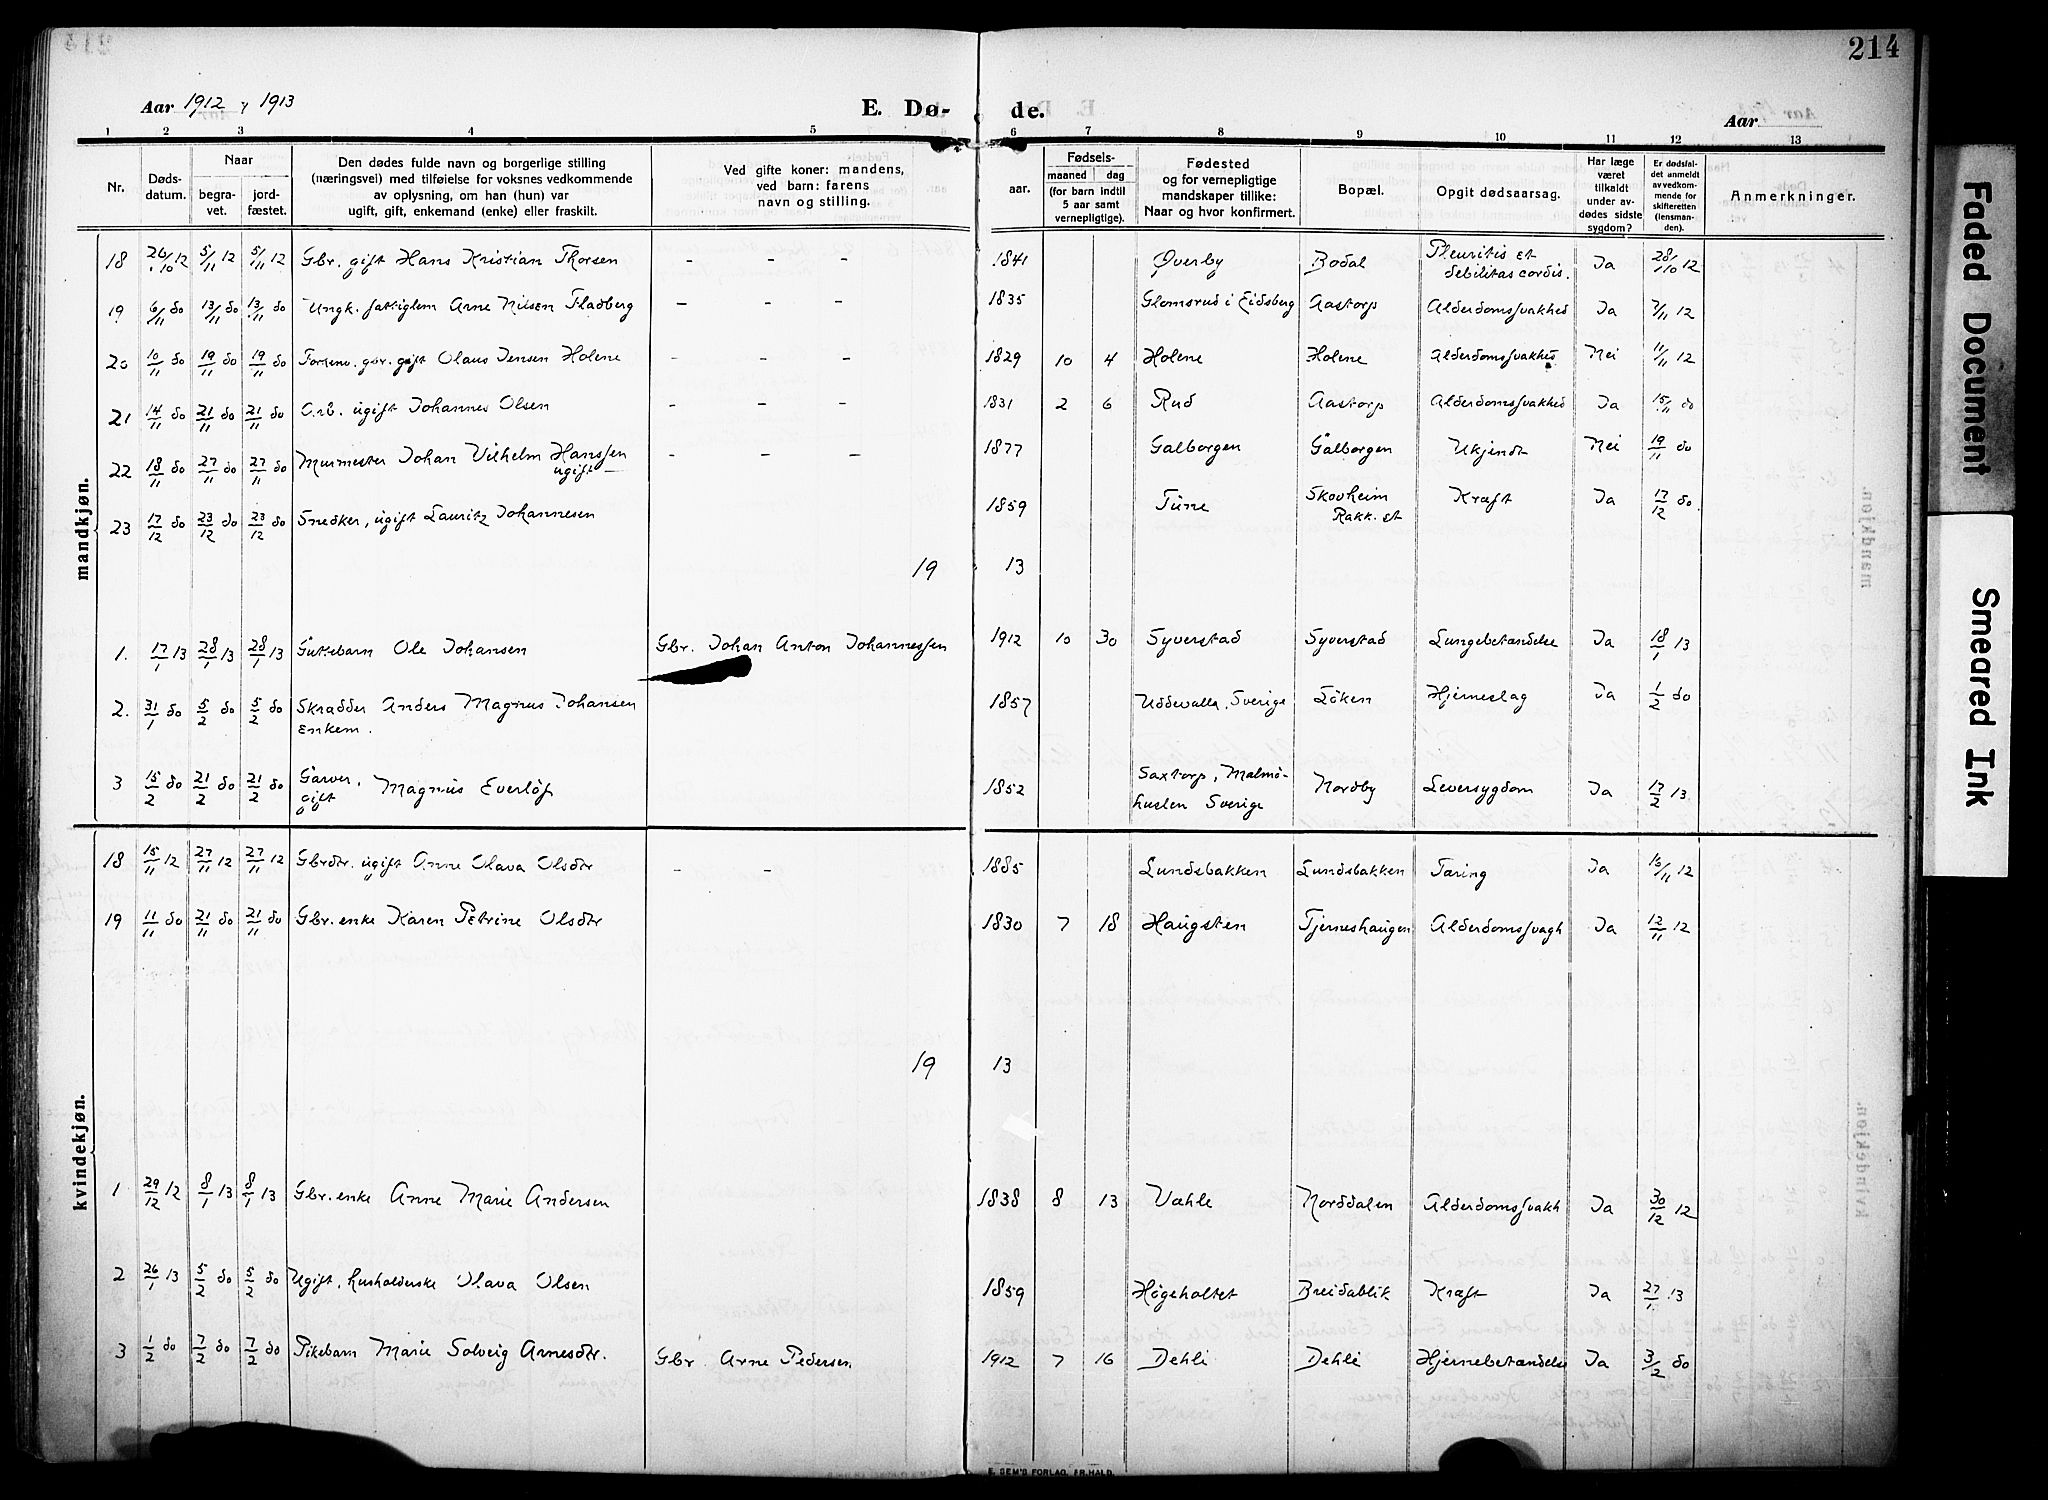 214
Aar 1912 & 1913
E. Dø- de.
Aar
1 2 3 4 5 6 7 8 9 10 11 12 13
Nr.
Døds-
datum.
Naar
begra-
vet.
jord-
fæstet.
Den dødes fulde navn og borgerlige stilling
(næringsvei) med tilføielse for voksnes vedkommende
av oplysning, om han (hun) var
ugift, gift, enkemand (enke) eller fraskilt.
Ved gifte koner: mandens,
ved barn: farens
navn og stilling.
Fødsels-
aar.
maaned dag
(for barn indtil
5 aar samt
vernepligtige).
Fødested
og for vernepligtige
mandskaper tillike:
Naar og hvor konfirmert.
Bopæl.
Opgit dødsaarsag.
Har læge
været
tilkaldt
under av-
dødes sidste
sygdom?
Er dødsfal-
det anmeldt
av vedkom-
mende for
skifteretten
(lensman-
den).
Anmerkninger.
mandkjøn.
18 26/10 12 5/11 12 5/11 12 Gbr. gift Hans Kristian Thorsen - - - 1841 Øverby Bodal Pleuritis et debilitas cordis. Ja 28/10 12
19 6/11 do 13/11 do 13/11 do Ungk. fattiglem Arne Nilsen Fladberg - - - 1835 Glomsrud i Eidsberg Aastorp Alderdomssvakhed Ja 7/11 12
20 10/11 do 19/11 do 19/11 do Forhenv. gbr. gift Olaus Jensen Holene - - - 1829 10 4 Holene Holene Alderdomssvakhed Nei 11/11 12
21 14/11 do 21/11 do 21/11 do Arb. ugift Johannes Olsen - - - 1831 2 6 Rud Aastorp Alderdomssvakhed Ja 15/11 do
22 18/11 do 27/11 do 27/11 do Murmester Johan Vilhelm Hanssen ugift - - - 1877 Galborgen Galborgen Ukjendt Nei 19/11 do
23 17/12 do 23/12 do 23/12 do Snedker, ugift Lauritz Johannesen 1859 Tune Skovheim Rakk. st Kræft Ja 17/12 do.
19 13
1. 17/1 13 28/1 13 28/1 13 Guttebarn Ole Johansen Gbr. Johan Anton Johannessen 1912 10 30 Syverstad Syverstad Lungebetændelse Ja 18/1 13
2. 31/1 do 5/2 do 5/2 do Skrædder Anders Magnus Johansen
Enkem. 1857 Uddevalla, Sverige Løken Hjerneslag Ja 1/2 do
3 15/2 do 21/2 do 21/2 do Garver, gift Magnus Everlöf 1852 Saxtorp, Malmö-
huslen Sverige Nordby Leversygdom Ja 17/2 13
kvindekjøn.
18 15/11 12 27/11 12 27/11 12 Gbrdtr. ugift Anne Olava Olsdtr - - 1885 Lundsbakken Lundsbakken Tæring Ja 15/11 12
19 11/11 do 21/11 do 21/11 do Gbr. enke Karen Petrine Olsdtr 1830 7 18 Haugsten Tjerneshaugen Alderdomssvagh Ja 12/11 12
19 13
1 29/12 12 8/1 13 8/1 13 Gbr. enke Anne Marie Andersen 1838 8 13 Væhle Norddalen Alderdomssvakh Ja 30/12 12
2 26/1 13 5/2 do 5/2 do Ugift, husholderske Olava Olsen 1859 Høgeholtet Breidablik Kræft Ja 27/1 13
3 1/2 do 7/2 do 7/2 do Pikebarn Marie Solveig Arnesdtr. Gbr. Arne Pedersen 1912 7 16 Dehli Dehli Hjernebetændelse Ja 3/2 do
E. SEM'S FORLAG, FR.HALD.
Faded Document
Smeared Ink